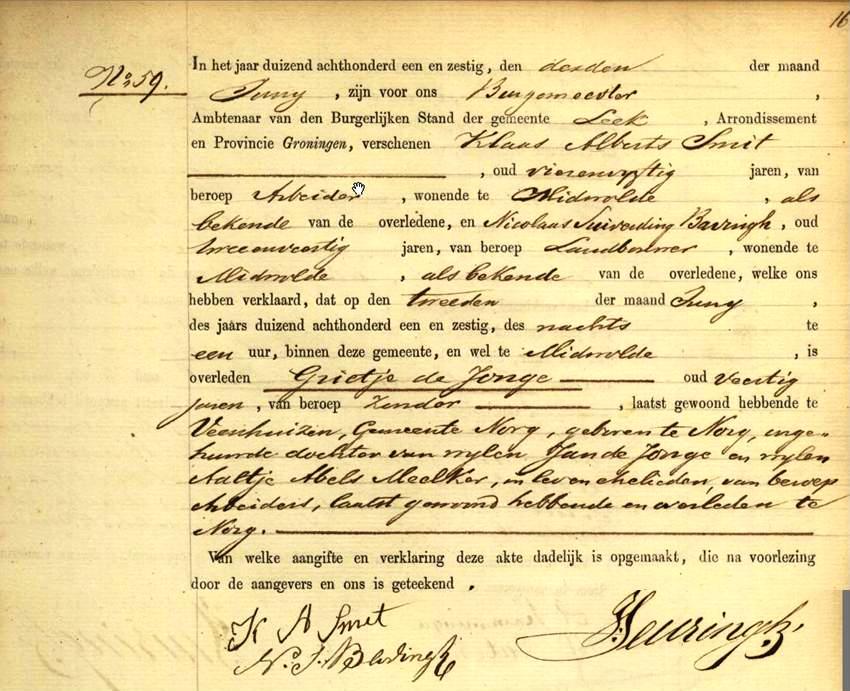 16
No 59.
In het jaar duizend achthonderd een en zestig, den derden der maand
Juny, zijn voor ons Burgemeester,
Ambtenaar van den Burgerlijken Stand der gemeente Leek, Arrondissement
en Provincie Groningen, verschenen Klaas Alberts Smit
, oud vierenvyftig jaren, van
beroep Arbeider, wonende te Midwolde, als
bekende van de overledene, en Nicolaas, oud
tweeenveertig jaren, van beroep Landbouwer, wonende te
Midwolde, als bekende van de overledene, welke ons
hebben verklaard, dat op den tweeden der maand Juny,
des jaars duizend achthonderd een en zestig, des nachts te
een uur, binnen deze gemeente, en wel te Midwolde, is
overleden Grietje de Jonge oud veertig
jaren, van beroep zonder, laatst gewoond hebbende te
Veenhuizen, Gemeente Norg, geboren te Norg, onge-
huwde dochter van wylen Jan de Jonge en wylen
Aaltje Abels Meelker, in leven ehelieden, van beroep
Arbeiders, laatst gewoond hebbende en overleden te
Norg.
Van welke aangifte en verklaring deze akte dadelijk is opgemaakt, die na voorlezing
door de aangevers en ons is geteekend.
K A Smit